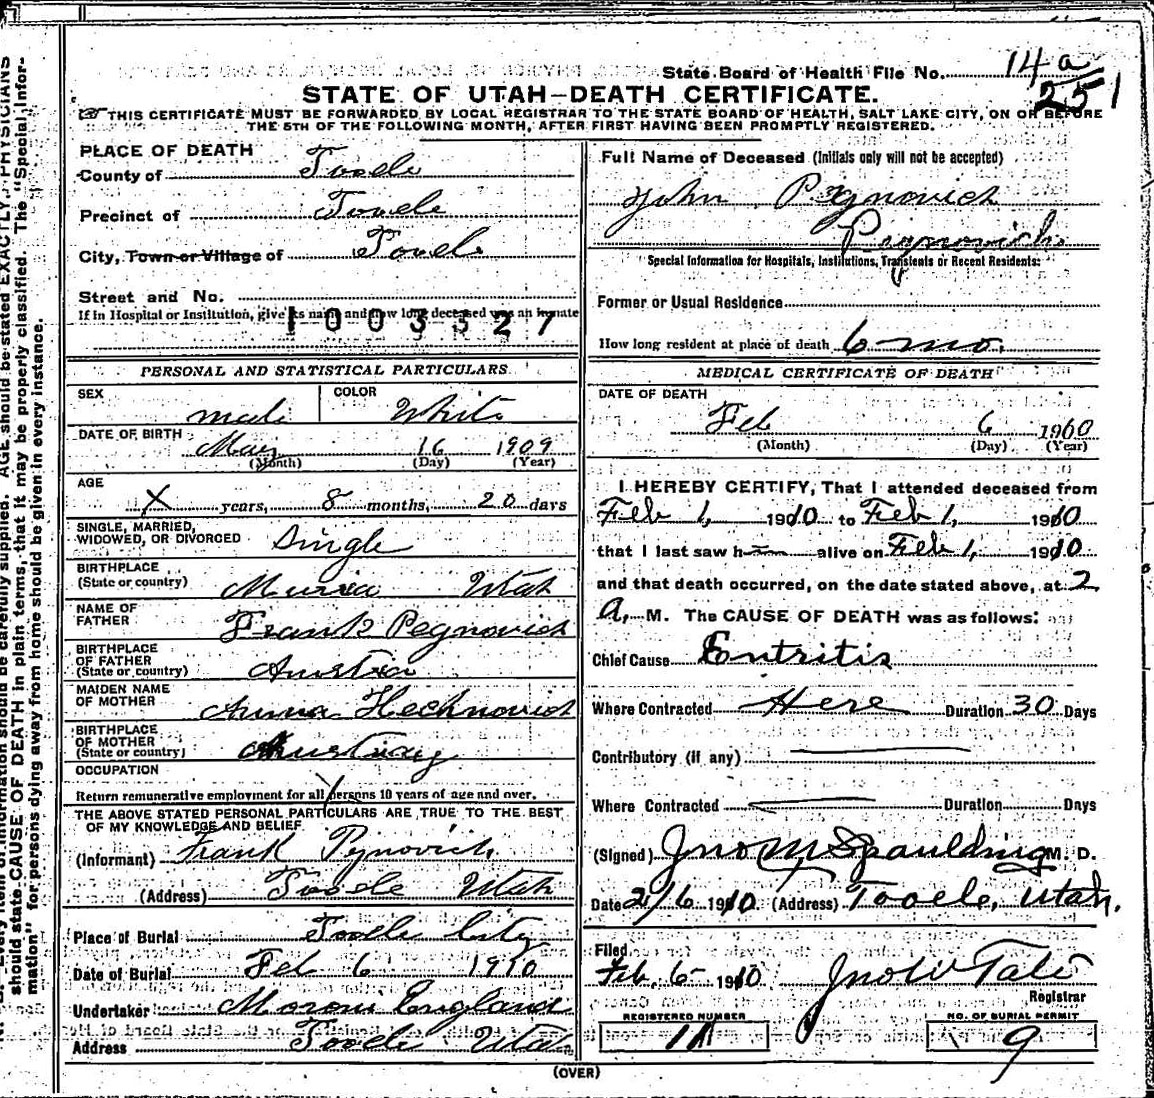 State Board of Health File No. 14 a
251
STATE OF UTAH—DEATH CERTIFICATE.
THIS CERTIFICATE MUST BE FORWARDED BY LOCAL REGISTRAR TO THE STATE BOARD OF HEALTH, SALT LAKE CITY, ON OR BEFORE
THE 5TH OF THE FOLLOWING MONTH, AFTER FIRST HAVING BEEN PROMPTLY REGISTERED.
PLACE OF DEATH
County of Tooele
Precinct of Tooele
City, Town or Village of Tooele
Street and No.
If in Hospital or Institution, give its name and how long deceased was an inmate
1003327
PERSONAL AND STATISTICAL PARTICULARS
SEX male COLOR White
DATE OF BIRTH May 16 1909
(Month) (Day) (Year)
AGE
X years, 8 months, 20 days
SINGLE, MARRIED,
WIDOWED, OR DIVORCED Single
BIRTHPLACE
(State or country) Utah
NAME OF
FATHER Frank Pegnovich
BIRTHPLACE
OF FATHER
(State or country) Austria
MAIDEN NAME
OF MOTHER Anna Hechnovich
BIRTHPLACE
OF MOTHER
(State or country)
OCCUPATION
Return remunerative employment for all persons 10 years of age and over.
THE ABOVE STATED PERSONAL PARTICULARS ARE TRUE TO THE BEST
OF MY KNOWLEDGE AND BELIEF
(Informant) Frank Pynovich
(Address) Tooele Utah
Place of Burial Tooele City
Date of Burial Feb 6 1910
Undertaker Moroni England
Address Tooele Utah
Full Name of Deceased (Initials only will not be accepted)
John
Pegnovich
Special Information for Hospitals, Institutions, Transients or Recent Residents:
Former or Usual Residence
How long resident at place of death 6 mo.
MEDICAL CERTIFICATE OF DEATH
DATE OF DEATH
Feb 6 1910
(Month) (Day) (Year)
I HEREBY CERTIFY, That I attended deceased from
Feb 1, 1910 to Feb 1, 1910
that I last saw h im alive on Feb 1, 1910
and that death occurred, on the date stated above, at 2
A. M. The CAUSE OF DEATH was as follows:
Chief Cause Entritis
Where Contracted Here Duration 30 Days
Contributory (if any)
Where Contracted Duration Days
(Signed) Jno M Spaulding M. D.
Date 2/6 1910. (Address) Tooele, Utah.
Filed
Feb. 6 1910 Jno W Tate
Registrar
REGISTERED NUMBER
11
NO. OF BURIAL PERMIT
9
(OVER)
Every item of information should be carefully supplied. AGE should be stated EXACTLY. PHYSICIANS
should state CAUSE OF DEATH in plain terms, that it may be properly classified. The "Special Infor-
mation" for persons dying away from home should be given in every instance.